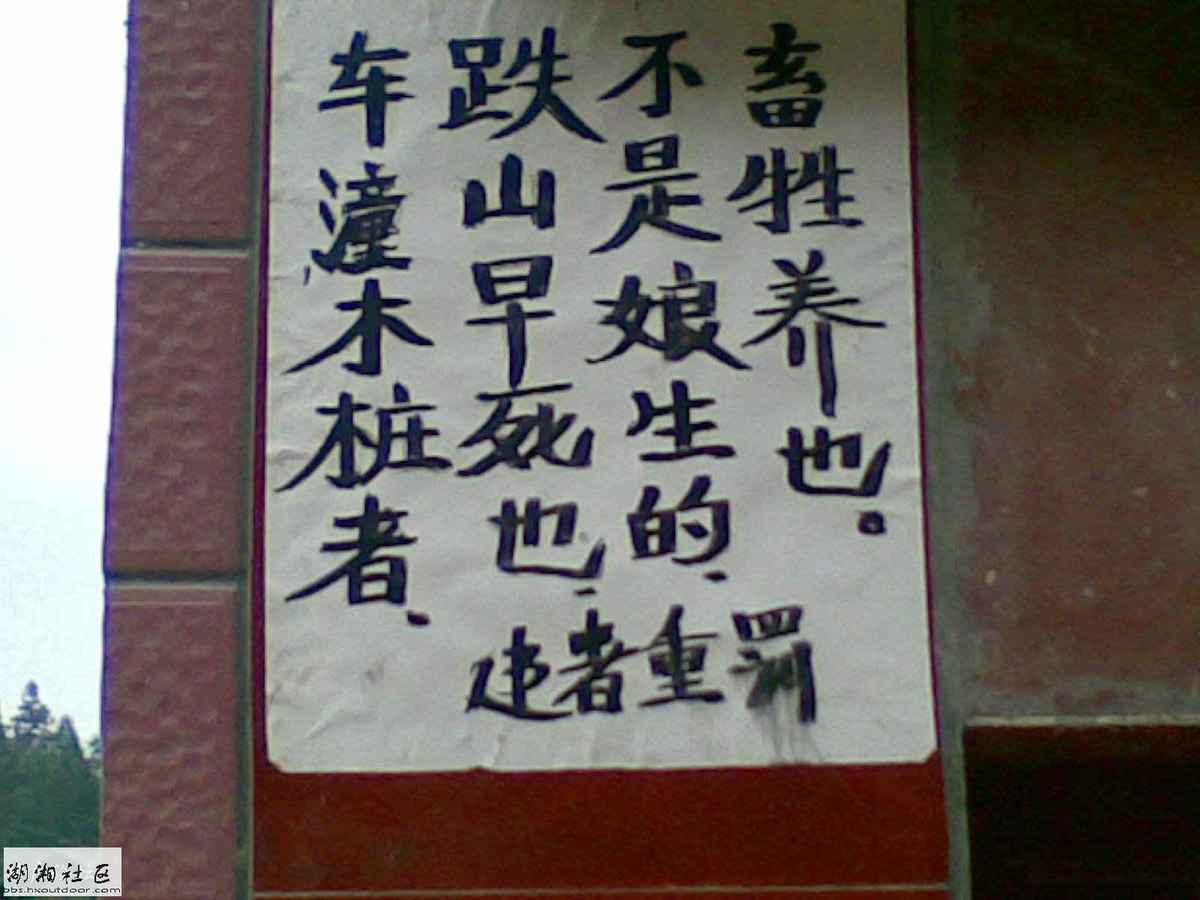 车潼木桩者、
跌山早死也、
不是娘生的、
畜牲养也。
违者重罚
湖湘社区
bbs.hxoutdoor.com